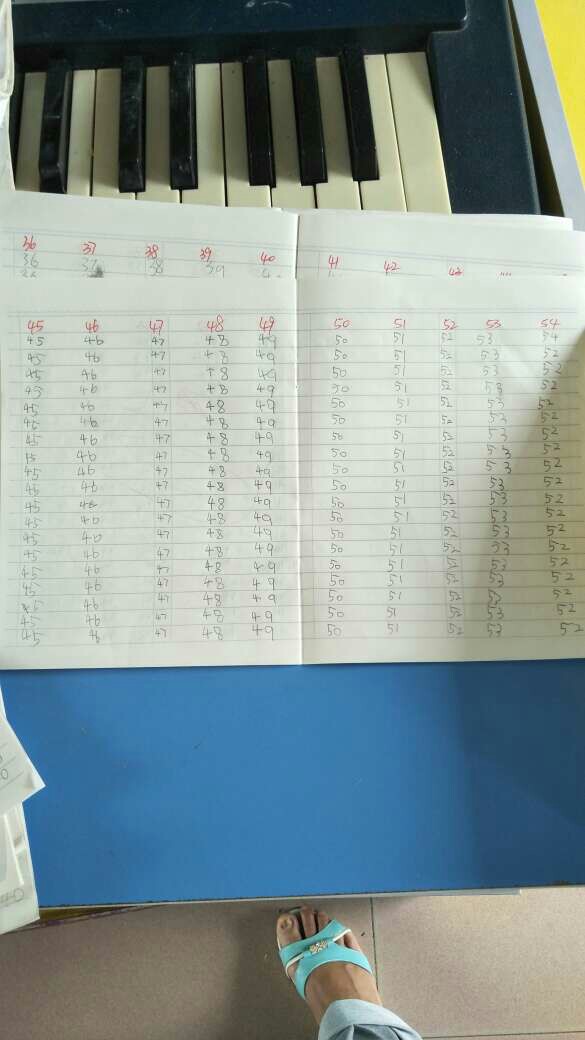 36 37 38 39 40 41 42 43
36 37 38 39
45 46 47 48 49 50 51 52 53 54
45 46 47 48 49 50 51 52 53 54
45 46 47 48 49 50 51 52 53 52
45 46 47 48 49 50 51 52 53 52
45 46 47 48 49 50 51 52 53 52
45 46 47 48 49 50 51 52 53 52
45 46 47 48 49 50 51 52 53 52
45 46 47 48 49 50 51 52 53 52
45 46 47 48 49 50 51 52 53 52
45 46 47 48 49 50 51 52 53 52
45 46 47 48 49 50 51 52 53 52
45 46 47 48 49 50 51 52 53 52
45 46 47 48 49 50 51 52 53 52
45 46 47 48 49 50 51 52 53 52
45 46 47 48 49 50 51 52 53 52
45 46 47 48 49 50 51 52 53 52
45 46 47 48 49 50 51 52 53 52
45 46 47 48 49 50 51 52 53 52
45 46 47 48 49 50 51 52 53 52
45 46 47 48 49 50 51 52 53 52